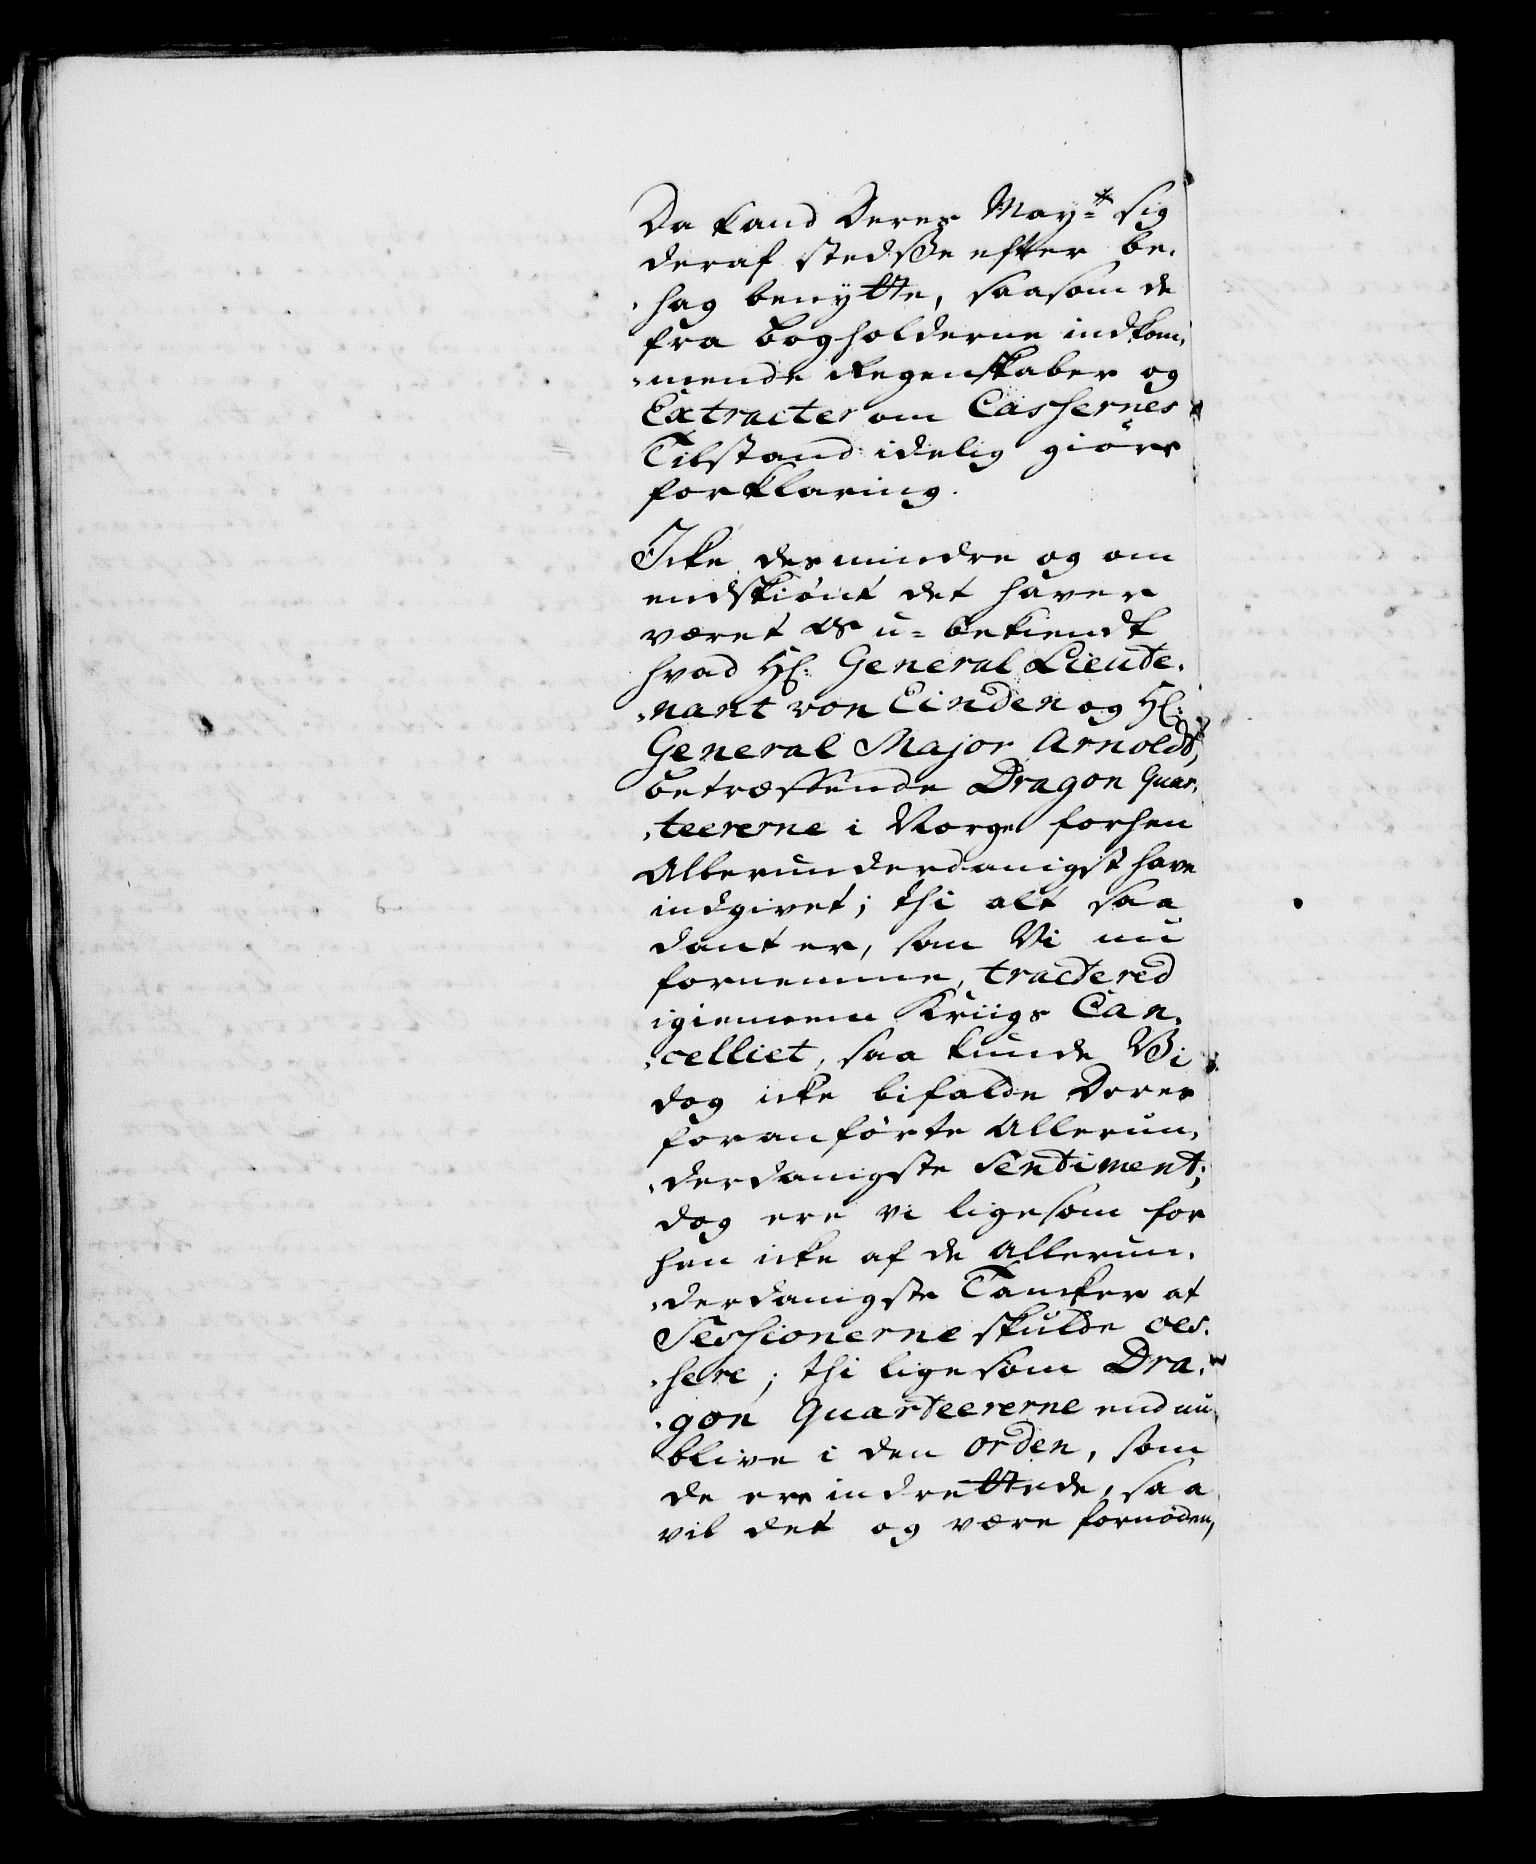 Da kand Deres May:t sig
deraf stedsse efter be-
-hag benytte, saasom de
fra bogholderne indkom-
-mende Regenskaber og
Extracter om Casshernes
Tilstand idelig giörs
forklaring.
Icke des mindre og om
endskiönt det haver
været os u-bekiendt
hvad Hl: General Lieute-
-nant von Einden og Hl:
General Major Arnoldt,
betræffende Dragon Quar-
-teererne i Norge forhen
Allerunderdanigst have
indgivet; thi alt saa
dant er, som Vi nu
fornemme, tractered
igiennem Kriigs Can-
-celliet, saa kunde Vi
dog icke bifalde Deres
foranförte Allerun-
-derdanigste Sentiment;
dog ere vi ligesom for
hen icke af de Allerun-
-derdanigste Tancker at
Seshionerne skulde ces-
-here; thi ligesom Dra-
-gon Quarteererne endnu
blive i den orden, som
de ere indrettede, saa
vil det og være fornöden,